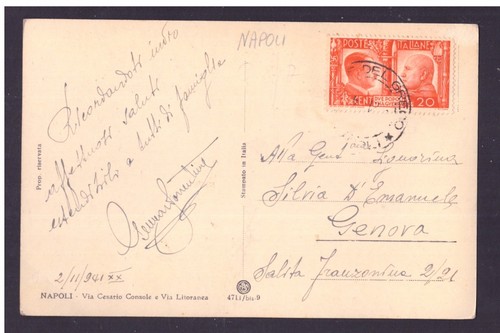 NAPOLI
POSTE ITALIANE
CENT 20
DEL GRECO
Ricordandoti invio
affettuosi saluti
estendibili a tutti di famiglia
2/11/941 XX
Foto riservata
Stampato in Italia
Alla Gent. Signorina
Silvia D'Emanuele
Genova
Salita Franzoniana 2/21
NAPOLI - Via Cesario Console e Via Litoranea
4711/bis-9